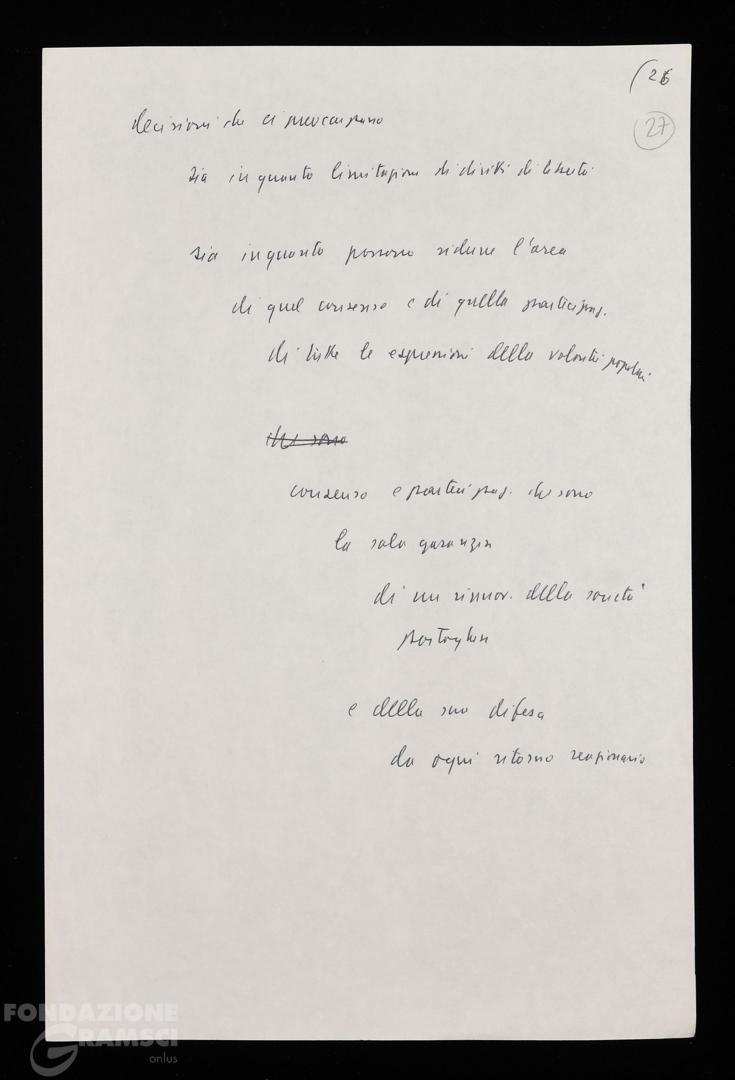 (26
27
decisioni che ci preoccupano
sia in quanto limitazione di diritti di libertà
sia in quanto possono ridurre l'area
di quel consenso e di quella partecipaz.
di tutte le espressioni della volontà popolare
che sono
consenso e partecipaz. che sono
la sola garanzia
di un rinnov. della società
portoghese
e della sua difesa
da ogni ritorno reazionario
FONDAZIONE
GRAMSCI
onlus